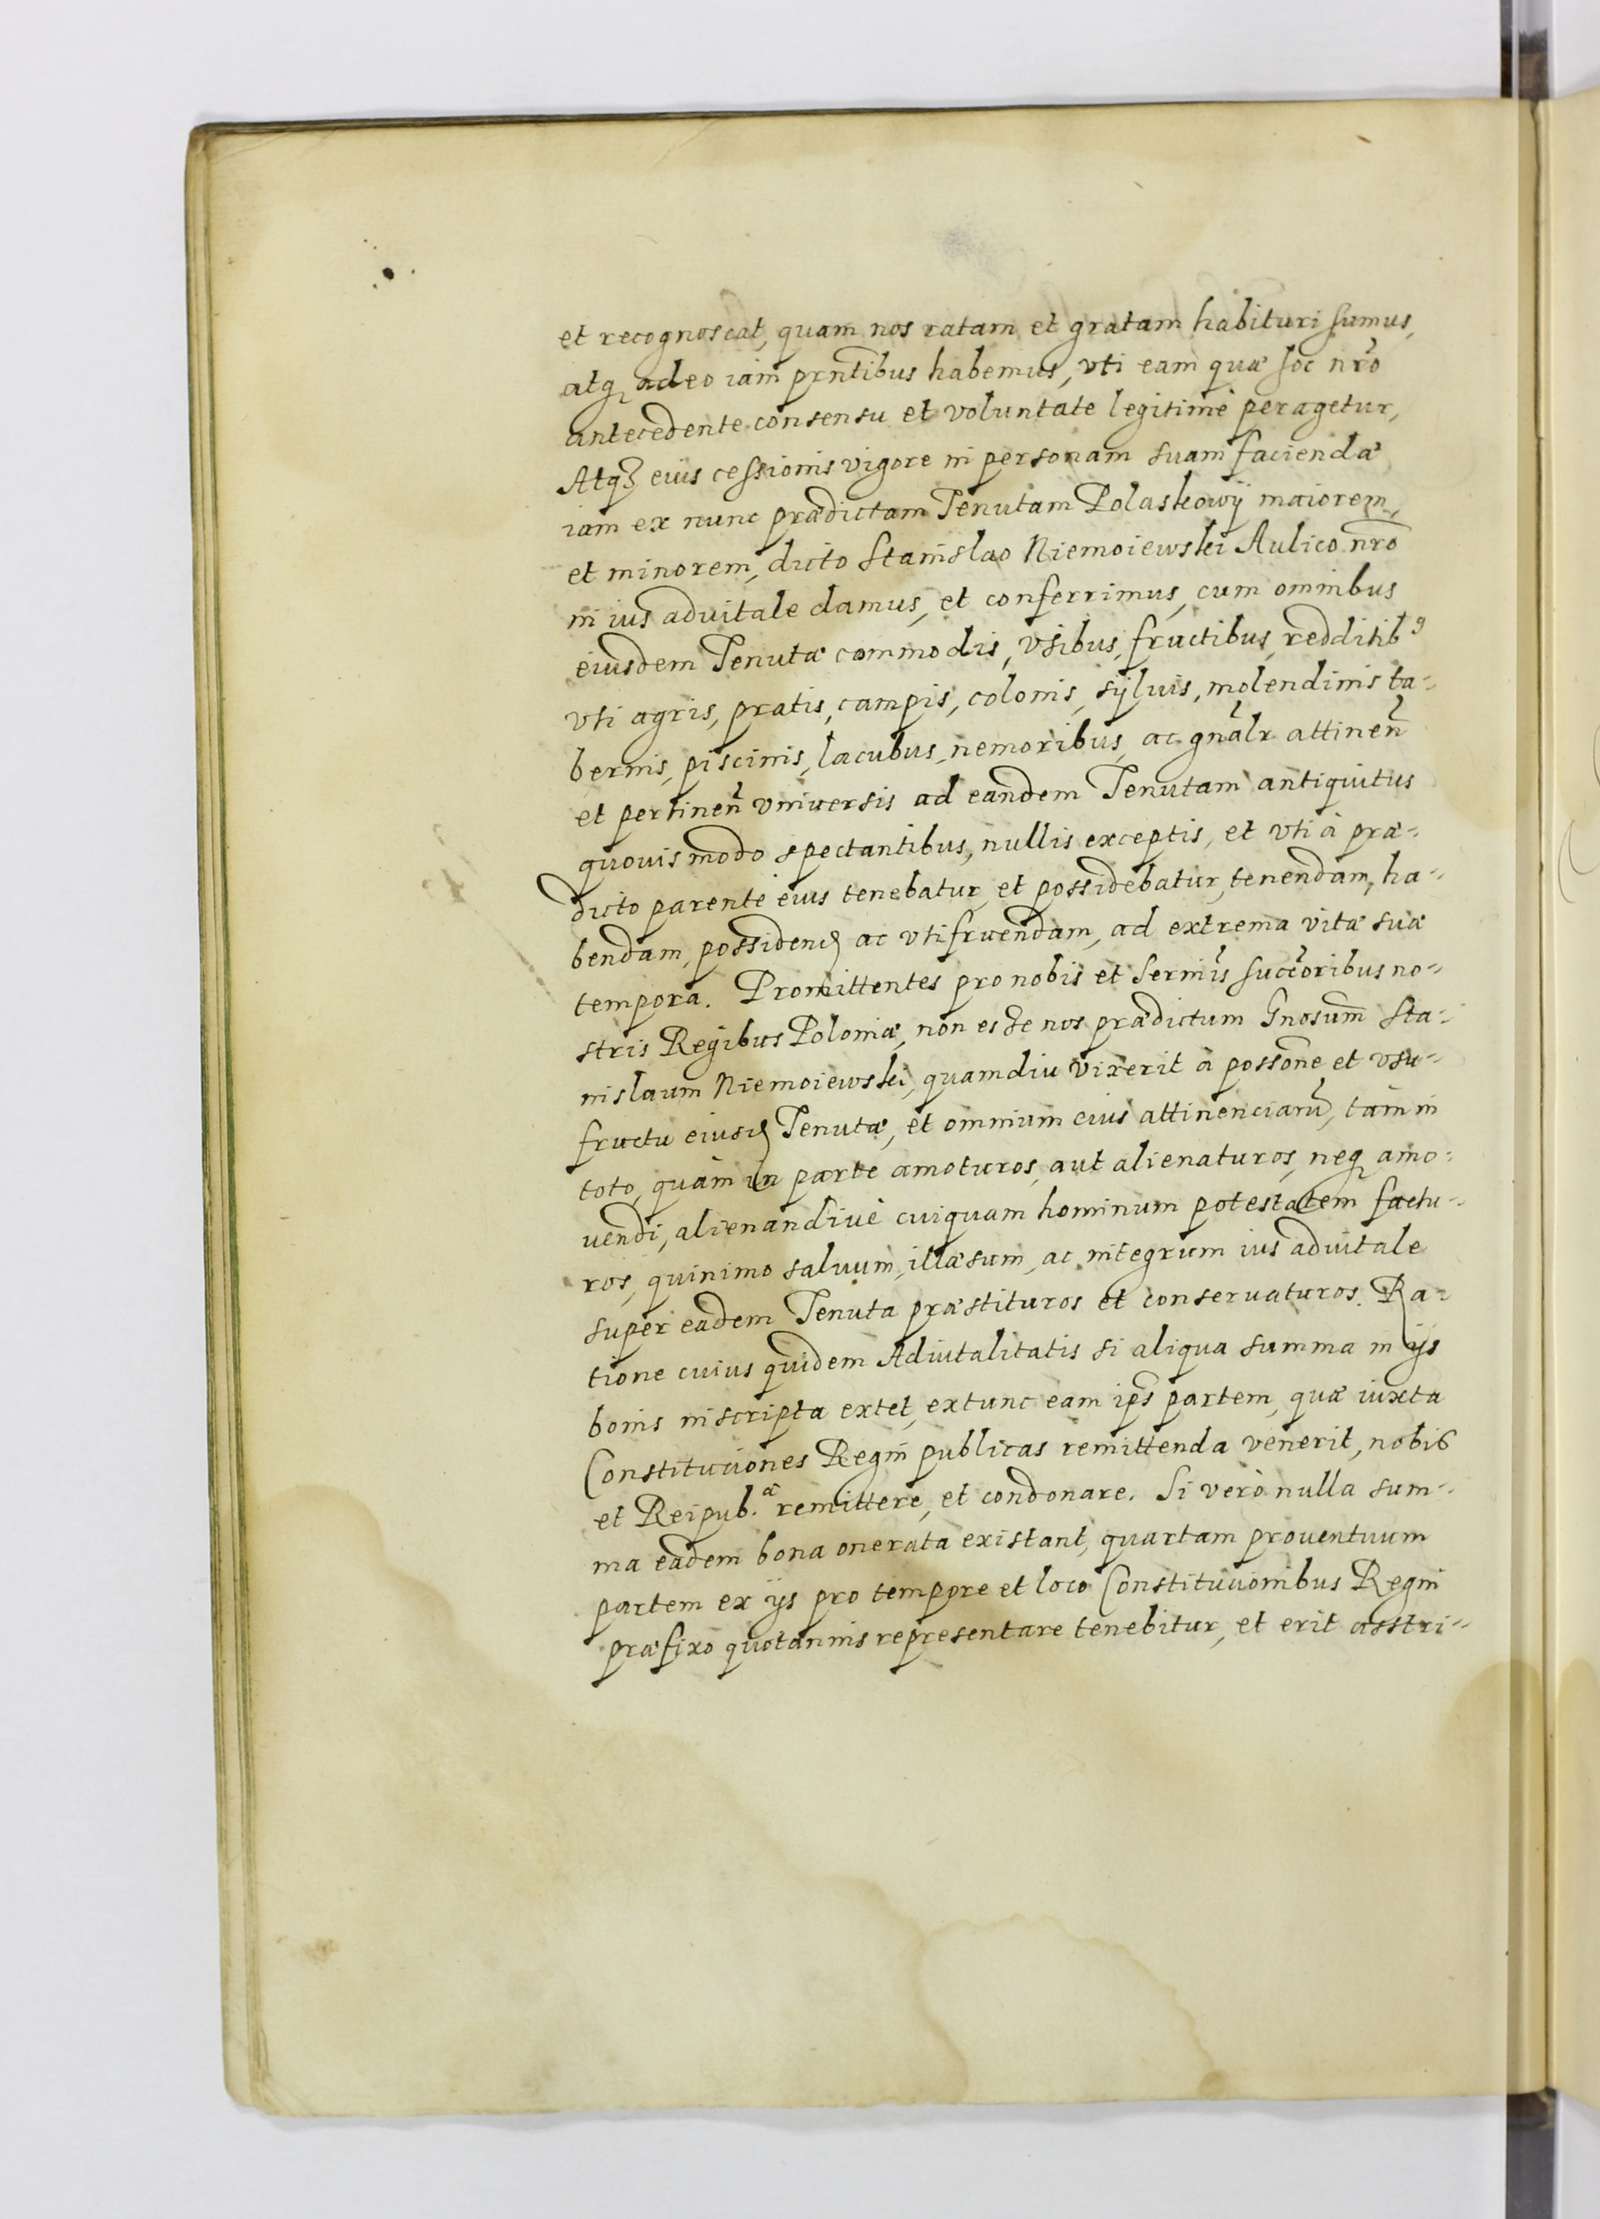 et recognoscat, quam nos ratam et gratam habituri sumus,
atq adeo iam prntibus habemus, vti eam quæ hoc nro
antecedente consensu et voluntate legitimè peragetur,
Atqz eius cessionis vigore in personam suam faciendæ
iam ex nunc prædictam Tenutam Polaskowÿ maiorem,
et minorem, dicto Stanislao Niemoiewski Aulico nro
in ius aduitale damus, et conferrimus, cum omnibus
eiusdem Tenutæ commodis, vsibus, fructibus, redditib9
vti agris, pratis, campis, colonis, sÿluis, molendinis ta-
bernis, piscinis, lacubus, nemoribus, ac gnalr attinen
et pertinen vniuersis ad eandem Tenutam antiquitus
quouismodo spectantibus, nullis exceptis, et vti à præ-
dicto parente eius tenebatur et possidebatur, tenendam, ha-
bendam, possidend ac vtifruendam, ad extrema vitæ suæ
tempora. Promittentes pro nobis et Sermis succoribus no-
stris Regibus Poloniæ, non esse nos prædictum Gnosum Sta-
nislaum Niemoiewski, quamdiu vixerit à possone et vsu-
fructu eiusd Tenutæ, et omnium eius attinenciaru, tàm in
toto, quàm in parte amoturos, aut alienaturos, neq amo-
uendi, alienandiuè cuiquam hominum potestatem factu-
ros, quinimo saluum, illæsum, ac integrum ius aduitale
super eadem Tenuta præstituros et conseruaturos. Ra-
tione cuius quidem Aduitalitatis si aliqua summa in ijs
bonis inscripta extet, extunc eam ips partem, quæ iuxta
Constituciones Regni publicas remittenda venerit, nobis
et Reipub.æ remittere, et condonare. Si verò nulla sum-
ma eadem bona onerata existant, quartam prouentuum
partem ex ijs pro tempore et loco Constitucionibus Regni
præfixo quotannis repræsentare tenebitur, et erit asstri-